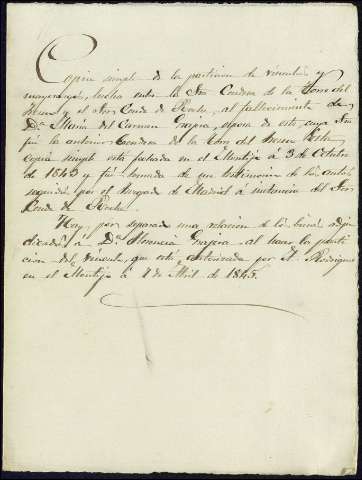 Copia simple de la particion de vinculos y
mayorazgos, hecha entre la Sra Condesa de la Torre del
Fresno y el Sor Conde de Rocha, al fallecimiento de
Da. Maria del Carmen Grajera, esposa de este, cuya Sra
fué la anterior Condesa de la Torre del Fresno. Esta
copia simple está fechada en el Montijo á 3 de Octubre
de 1843 y fué tomada de un testimonio de los autos
seguidos por el Juzgado de Madrid á instancia del Sor
Conde de Rocha.
Hay, por separado una relacion de los bienes adju-
dicados á Da. Florencia Grajera al hacer la parti-
cion del vinculo, que está autorizada por D. Rodriguez
en el Montijo á 4 de Abril de 1845.